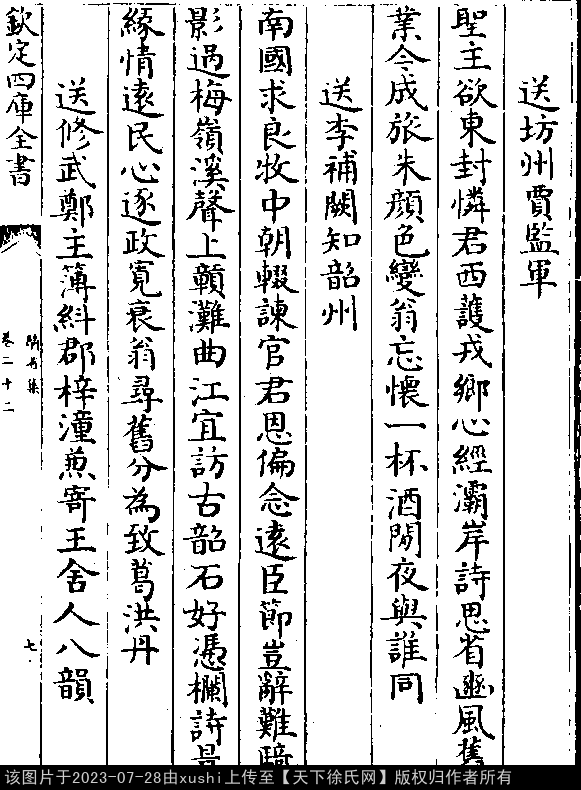 送坊州賈監軍
聖主欲東封憐君西護戎鄉心經灞岸詩思省豳風舊
業今成旅朱顔色變翁忘懷一杯酒閒夜與誰同
送李補闕知韶州
南國求良牧中朝輟諫官君恩偏念逺臣節豈辭難
影過梅嶺溪聲上贑灘曲江宜訪古韶石好憑欄詩
緣情逺民心逐政寛衰翁尋舊分為致葛洪丹
送修武鄭主簿紏郡梓潼兼寄王舍人八韻
卷二十二
七
欽定四庫全書
该图片于2023-07-28由xushi上传至【天下徐氏网】版权归作者所有